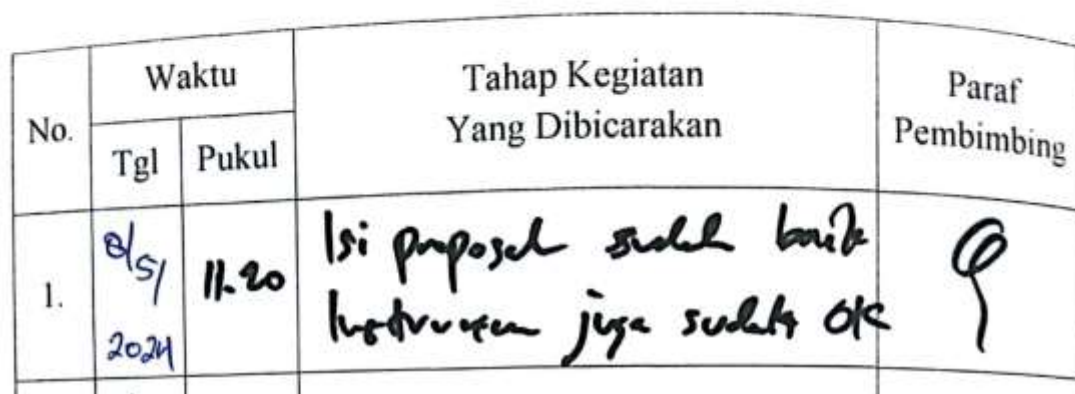 No.
Waktu
Tgl
Pukul
Tahap Kegiatan
Yang Dibicarakan
Paraf
Pembimbing
1.
8/5/
2024
11.20
Isi proposal sudah baik
Instrumen juga sudah OK